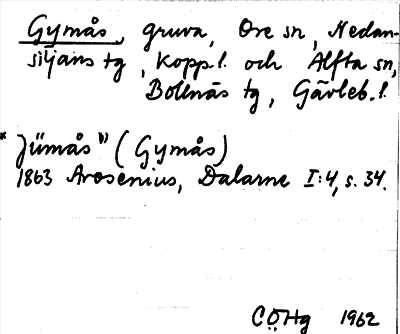 Gymås, gruva, Ore sn, Nedan-
siljans tg, Kopp.l. och Alfta sn,
Bollnäs tg, Gävleb.l.
"Jümås" (Gymås)
1863 Arosenius, Dalarne I:4, s. 34.
CÖHg 1962